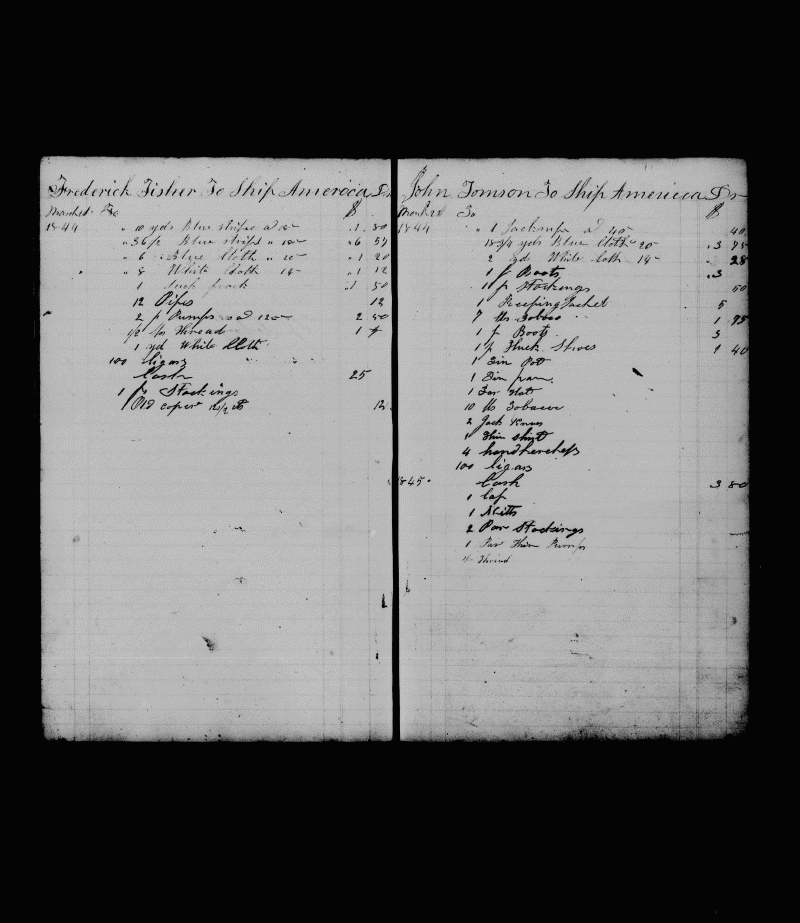 Frederick Fisher To Ship America Dr
March To $
1844 " 10 yds Blue stripe a 15 " 1 50
" 36 p Blue stripe " 18 " 6 57
" 6 " Blue Cloth " 20 " 1 20
" 8 White Cloth 14 " 1 12
1 frock 1 50
12 Pipes 12
2 p Pumps a 125 2 50
1/2 lbs Thread 1
1 yd White Cloth
100 Cigars
Cash 25
1 p Stockings
1 Old coper 12
John Tomson To Ship America Dr
March To $
1844 " 1 Jacknife a 40 40
18 3/4 yds Blue Cloth 20 3 75
2 yd White Cloth 14 28
1 p Boots 3
1 p Stockings 50
1 Jacket 5
7 lbs Tobaco 1 75
1 p Boots 3
1 p Thick Shoes 1 40
1 Tin Pot
1 Tin pan
1 Tar Hat
10 lbs Tobacco
2 Jack Knives
1 Thin Shirt
4 handkerchefs
100 Cigars
1845 Cash 3 80
1 Cap
1 Mitts
2 Par Stockings
1 Par Thin Pumps
Thread